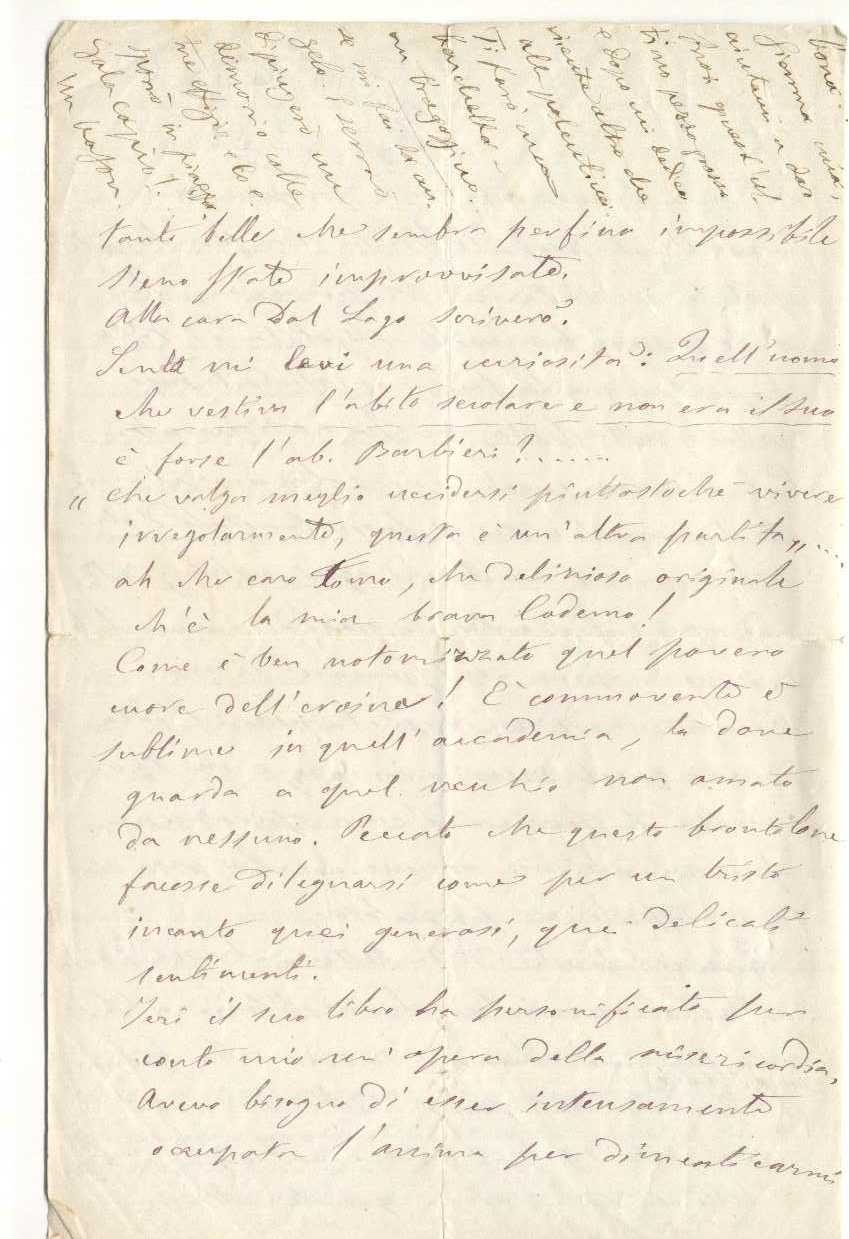 tanto belle che sembra perfino impossibile
sieno state improvvisate.
Alla cara Dal Lago scriverò.
Senta mi levi una curiosità: Quell'uomo
che vestiva l'abito secolare e non era il suo
è forse l'ab. Barbieri?......
„ Che valga meglio uccidersi piuttostochè vivere
irregolarmente, questa è un'altra partita„....
ah che caro tomo, che delizioso originale
ch'è la mia brava Codemo!
Come è ben notomizzato quel povero
cuore dell'eroina! È commovente è
sublime in quell'accademia, là dove
guarda a quel vecchio non amato
da nessuno. Peccato che questo brontolone
facesse dileguarsi come per un tristo
incanto quei generosi, quei delicati
sentimenti.
Jeri il suo libro ha personificato per
conto mio un'opera della misericordia,
Avevo bisogno di esser intensamente
occupata l'anima per dimenticarmi
bona..
Gemma mia,
aiutami a dar
quest'ul
timo pezzo grosso
e dopo mi dedico
niente altro che
alla
Ti farò una
barchetta
un bragozzino..
se mi fai la
gelo. E
dipingerò un
demonio colle
tre effigie e lo e
sporrò in piazza